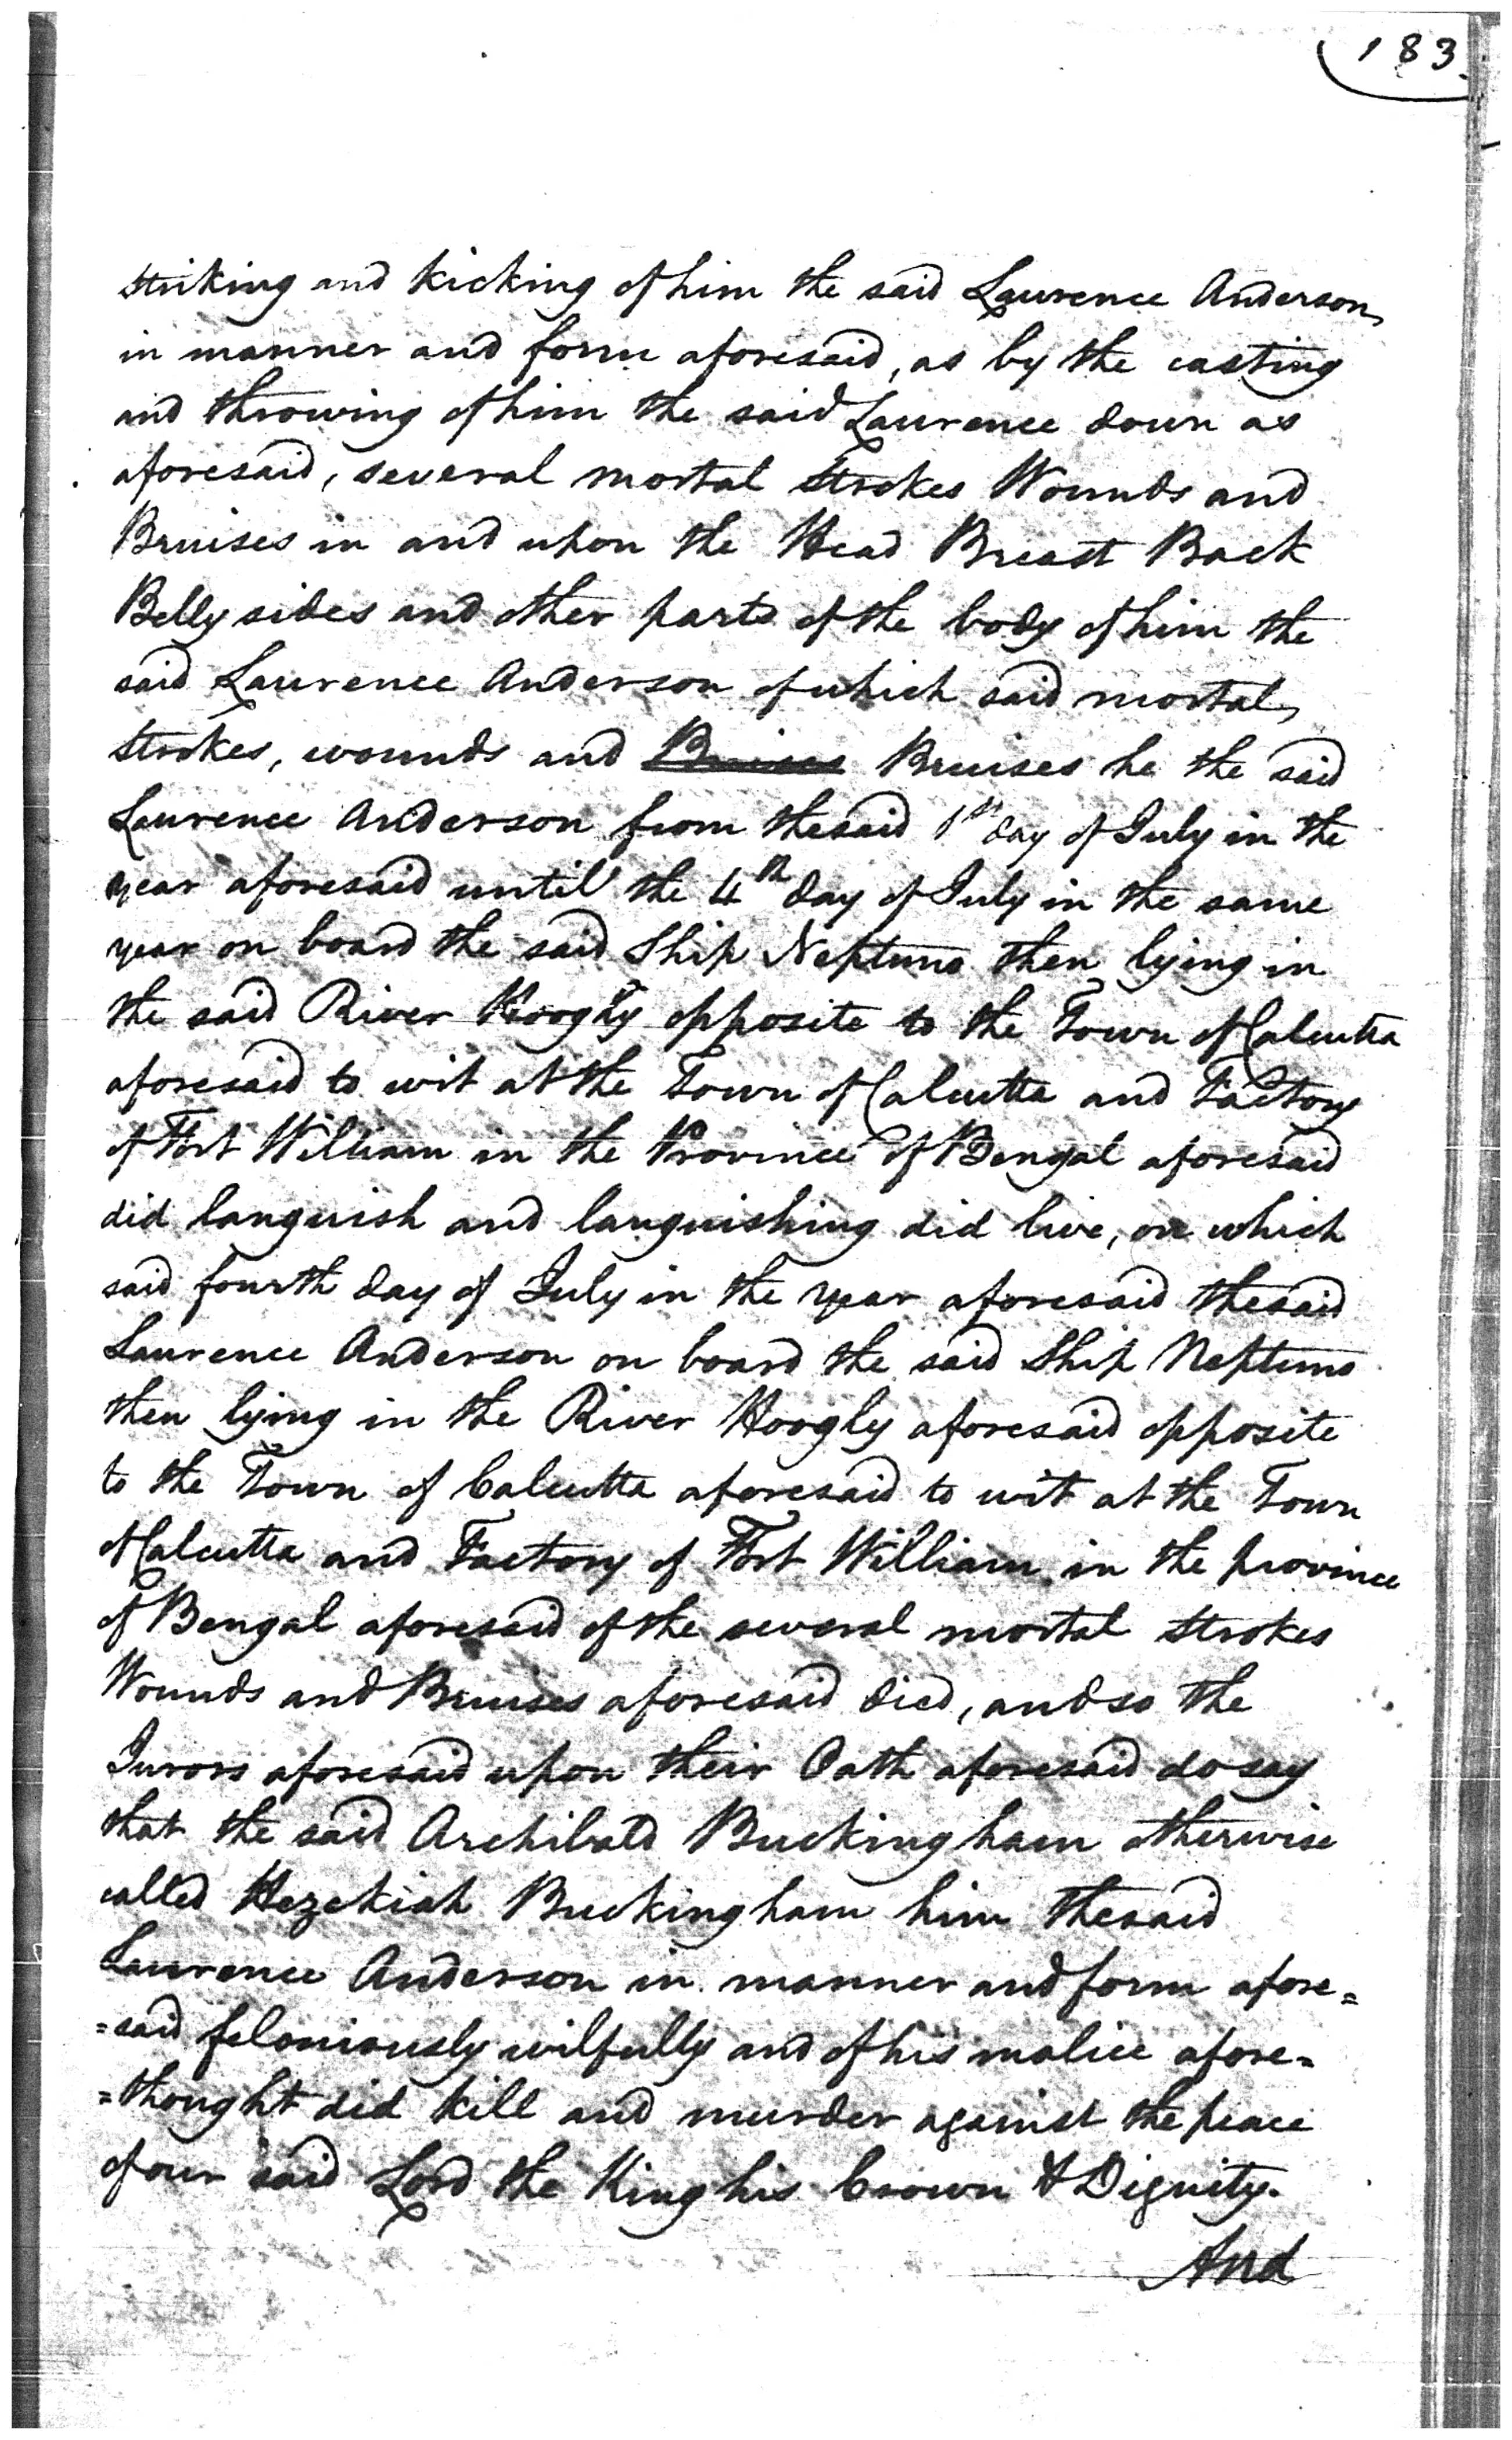 183
striking and kicking of him the said Laurence Anderson
in manner and form aforesaid, as by the casting
and throwing of him the said Laurence down as
aforesaid, several mortal Strokes Wounds and
Bruises in and upon the Head Breast Back
Belly sides and other parts of the body of him the
said Laurence Anderson of which said mortal
Strokes, wounds and Bruises Bruises he the said
Laurence Anderson from the said 1st day of July in the
year aforesaid until the 4th day of July in the same
year on board the said Ship Neptune then lying in
the said River Hoogly opposite to the Town of Calcutta
aforesaid to wit at the Town of Calcutta and Factory
of Fort William in the Province of Bengal aforesaid
did languish and languishing did live, on which
said fourth day of July in the year aforesaid the said
Laurence Anderson on board the said Ship Neptune
then lying in the River Hoogly aforesaid opposite
to the Town of Calcutta aforesaid to wit at the Town
of Calcutta and Factory of Fort William in the province
of Bengal aforesaid of the several mortal Strokes
Wounds and Bruises aforesaid died, and so the
Jurors aforesaid upon their Oath aforesaid do say
that the said Archibald Buckingham otherwise
called Hezekiah Buckingham him the said
Laurence Anderson in manner and form afore=
=said feloniously wilfully and of his malice afore=
=thought did kill and murder against the peace
of our said Lord the King his Crown & Dignity.
And